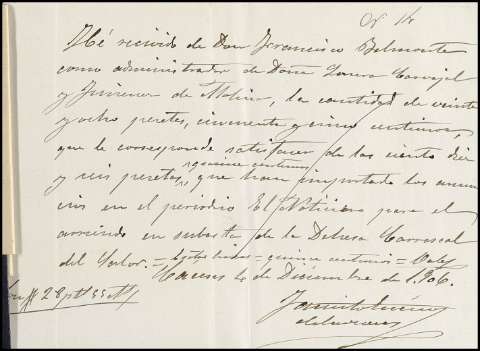 Nº 14
Hé recivido de Don Francisco Belmonte
como administrador de Doña Laura Carvajal
y Jimenez de Molina, la cantidad de veinte
y ocho pesetas, cincuenta y cinco centimos,
que le corresponde satisfacer de las ciento diez
quince centimos
y seis pesetas que han importado los anun
cios en el periodico El Noticiero para el
arriendo en subasta de la Dehesa Carrascal
del = = quince centimos = Vale
Caceres 4 de Diciembre de 1.906.
28 pts 55 cts